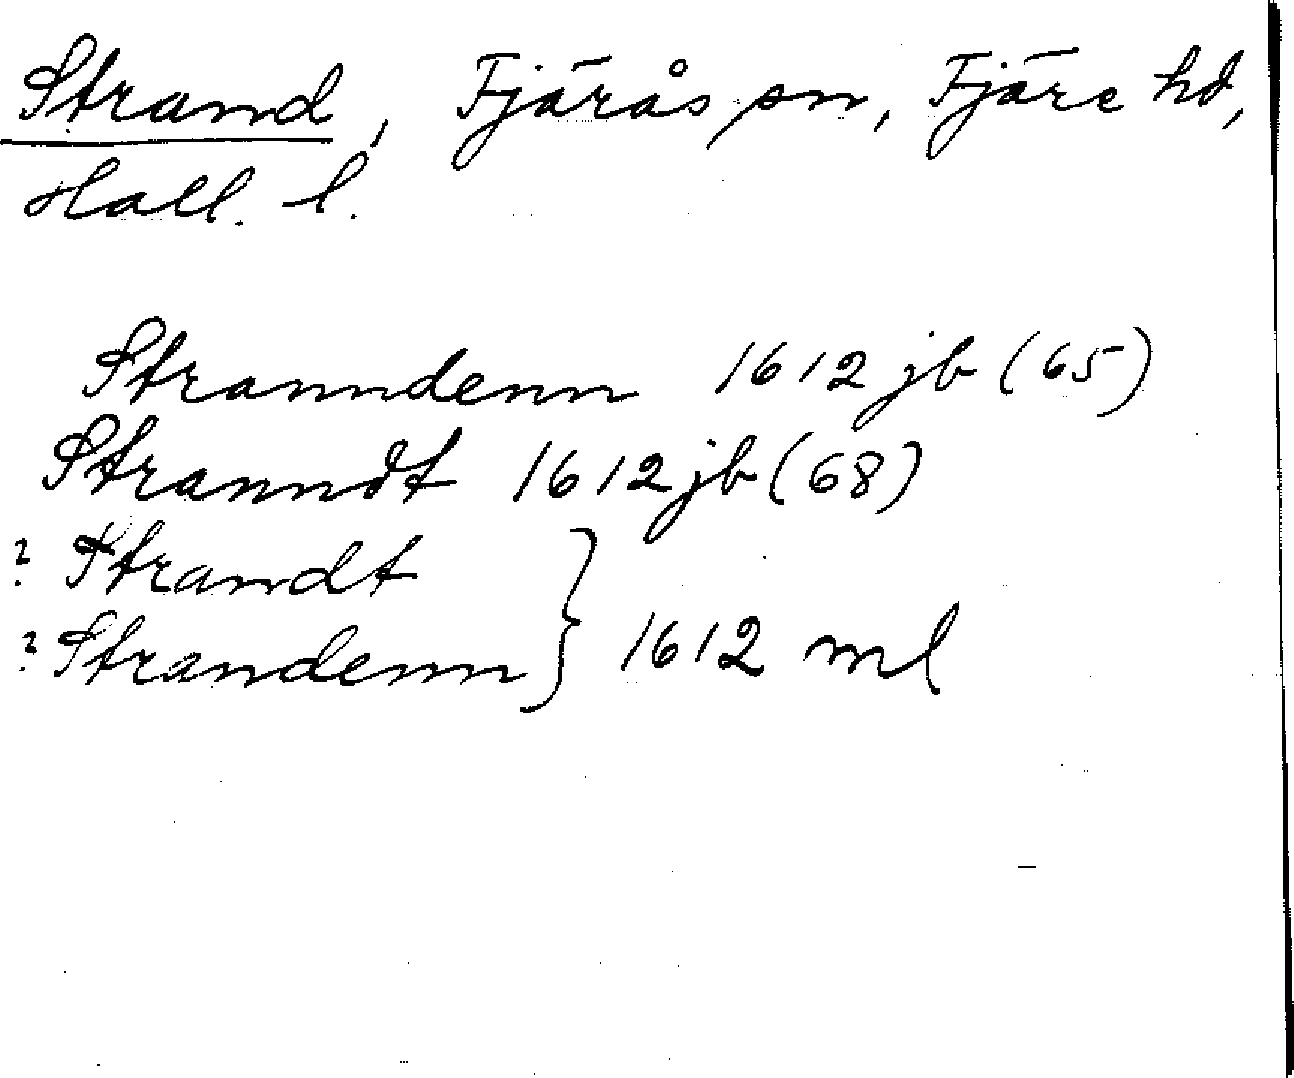 Strand, Fjärås sn, Fjäre hd,
Hall. l.
Stranndenn 1612 jb (65)
Stranndt 1612 jb (68)
? Strandt
? Strandenn } 1612 ml